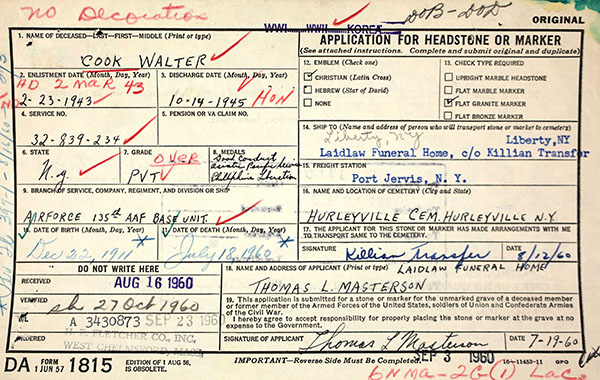 NO Decoration
WWI WWII KOREA
DOB-DOD
ORIGINAL
1. NAME OF DECEASED—LAST—FIRST—MIDDLE (Print or type)
COOK WALTER
APPLICATION FOR HEADSTONE OR MARKER
(See attached instructions. Complete and submit original and duplicate)
2. ENLISTMENT DATE (Month, Day, Year)
AD 2 MAR 43
2-23-1943
3. DISCHARGE DATE (Month, Day, Year)
10-14-1945 HON
12. EMBLEM (Check one)
CHRISTIAN (Latin Cross)
HEBREW (Star of David)
NONE
13. CHECK TYPE REQUIRED
UPRIGHT MARBLE HEADSTONE
FLAT MARBLE MARKER
FLAT GRANITE MARKER
FLAT BRONZE MARKER
4. SERVICE NO.
32-839-234
5. PENSION OR VA CLAIM NO.
14. SHIP TO (Name and address of person who will transport stone or marker to cemetery)
Liberty, NY
Liberty, NY
Laidlaw Funeral Home, c/o Killian Transfer
6. STATE
N.Y.
7. GRADE
OVER
PVT
8. MEDALS
Good Conduct
15. FREIGHT STATION
Port Jervis, N. Y.
9. BRANCH OF SERVICE, COMPANY, REGIMENT, AND DIVISION OR SHIP
AIRFORCE 135th AAF BASE UNIT.
16. NAME AND LOCATION OF CEMETERY (City and State)
HURLEYVILLE CEM. HURLEYVILLE N.Y.
10. DATE OF BIRTH (Month, Day, Year)
Dec 22, 1911
11. DATE OF DEATH (Month, Day, Year)
July 18, 1960
17. THE APPLICANT FOR THIS STONE OR MARKER HAS MADE ARRANGEMENTS WITH ME TO TRANSPORT SAME TO THE CEMETERY.
SIGNATURE
Killian Transfer
DATE
8/12/60
DO NOT WRITE HERE
18. NAME AND ADDRESS OF APPLICANT (Print or type)
LAIDLAW FUNERAL HOME
THOMAS L. MASTERSON
RECEIVED
AUG 16 1960
VERIFIED
27 Oct 1960
19. This application is submitted for a stone for the unmarked grave of a deceased member
or former member of the Armed Forces of the United States, soldiers of Union and Confederate Armies
of the Civil War.
I hereby agree to accept responsibility for properly placing the stone or marker at the grave at
no expense to the Government.
A 3430873 SEP 23 1960
H. E. FLETCHER CO., INC.
WEST CHELMSFORD, MASS.
SIGNATURE OF APPLICANT
Thomas L Masterson
DATE
7-19-60
SEP 3 1960
DA FORM 1 JUN 57 1815
EDITION OF 1 AUG 56, IS OBSOLETE.
IMPORTANT—Reverse Side Must be Completed.